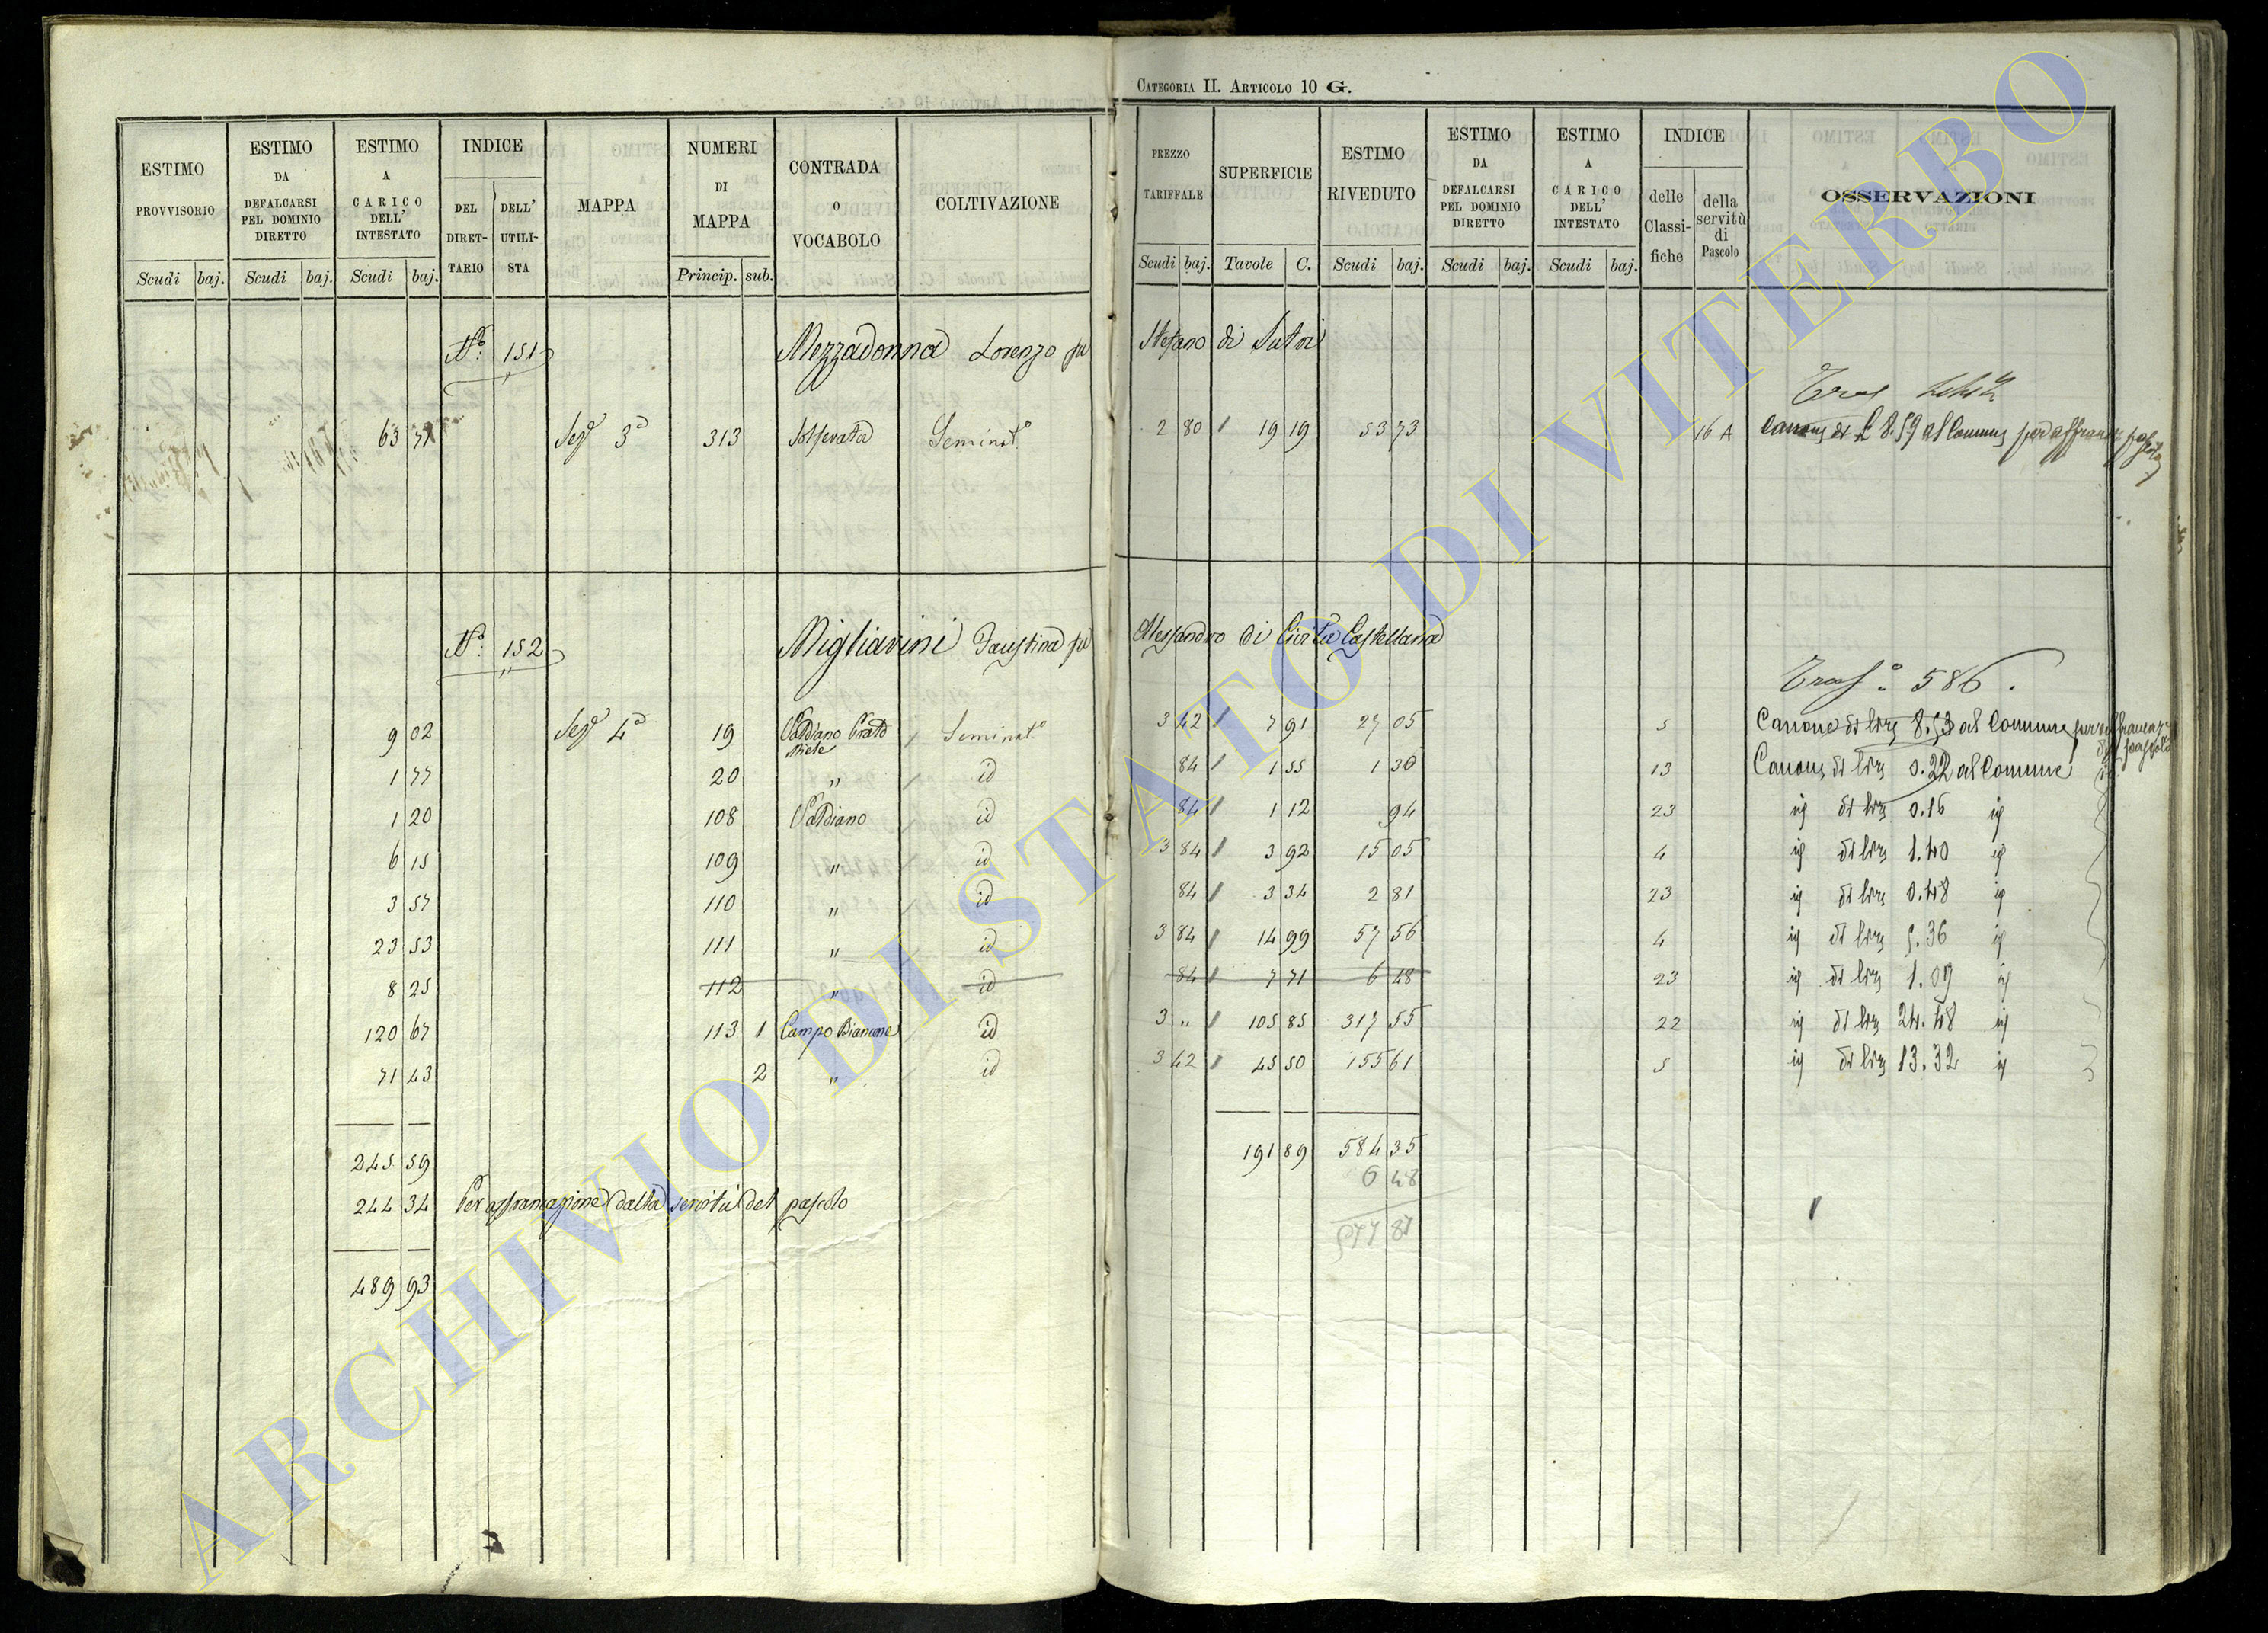 CATEGORIA II. ARTICOLO 10 G.
ESTIMO PROVVISORIO Scudi baj.
ESTIMO DA DEFALCARSI PEL DOMINIO DIRETTO Scudi baj.
ESTIMO A CARICO DELL' INTESTATO Scudi baj.
INDICE DEL DIRETTARIO DELL' UTILISTA
MAPPA
NUMERI DI MAPPA Princip. sub.
CONTRADA O VOCABOLO
COLTIVAZIONE
PREZZO TARIFFALE Scudi baj.
SUPERFICIE Tavole C.
ESTIMO RIVEDUTO Scudi baj.
ESTIMO DA DEFALCARSI PEL DOMINIO DIRETTO Scudi baj.
ESTIMO A CARICO DELL' INTESTATO Scudi baj.
INDICE delle Classifiche della servitù di Pascolo
OSSERVAZIONI
N.o 151 Mezzadonna Lorenzo fu Stefano di Sutri
63 71 Sez.e 3a 313 Solferata Seminat.o 2 80 19 19 53 73 16 A Canone di £ 8.59 al Comune per affranc
N.o 152 Migliarini Faustina fu Alessandro di Civita Castellana
Trasf.o 586.
9 02 Sez.e 4a 19 Valdiano Prato Miele Seminat.o 3 42 7 91 27 05 5 Canone di lire 8.53 al Comune per affrancaz di pascolo
1 77 20 " id 84 1 55 1 30 13 Canone di lire 0.22 al Comune
1 20 108 Valdiano id 84 1 12 94 23 id di lire 0.16 id
6 15 109 " id 3 84 3 92 15 05 4 id di lire 1.40 id
3 57 110 " id 84 3 34 2 81 23 id di lire 0.48 id
23 53 111 " id 3 84 14 99 57 56 4 id di lire 5.36 id
8 25 112 " id 84 7 71 6 48 23 id di lire 1.09 id
120 67 113 1 Campo Biancone id 3 " 105 85 317 55 22 id di lire 24.48 id
71 43 2 " id 3 42 45 50 155 61 5 id di lire 13.32 id
245 59 191 89 584 35
6 48
244 34 Per affrancazione dalla servitù del pascolo
577 87
489 93
ARCHIVIO DI STATO DI VITERBO